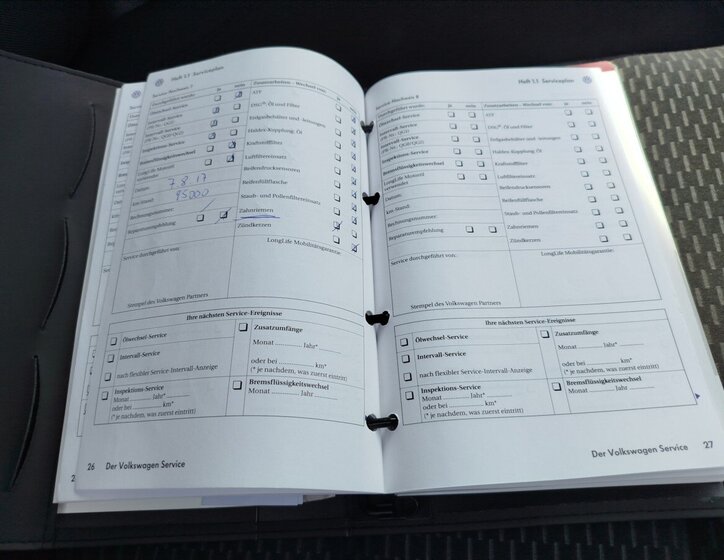 Heft 1.1 Serviceplan
Service-Nachweis 7
Durchgeführt wurde: ja nein
Zusatzarbeiten - Wechsel von: ja nein
Ölwechsel-Service
ATF
Intervall-Service
DSG®: Öl und Filter
Intervall-Service
Erdgasbehälter und -leitungen
Inspektions-Service
Haldex-Kupplung: Öl
Bremsflüssigkeitswechsel
Kraftstofffilter
LongLife Motoröl
verwendet
Luftfiltereinsatz
Datum: 7 8 17
Reifendrucksensoren
Km-Stand: 95000
Reifenfüllflasche
Rechnungsnummer:
Staub- und Pollenfiltereinsatz
Reparaturempfehlung
Zahnriemen
Zündkerzen
LongLife Mobilitätsgarantie:
Service durchgeführt von:
Stempel des Volkswagen Partners
Ihre nächsten Service-Ereignisse
Ölwechsel-Service
Intervall-Service
nach flexibler Service-Intervall-Anzeige
Zusatzumfänge
Monat ............... Jahr*...............
oder bei ............... km*
(* je nachdem, was zuerst eintritt)
Inspektions-Service
Monat ............... Jahr*...............
oder bei ............... km*
(* je nachdem, was zuerst eintritt)
Bremsflüssigkeitswechsel
Monat ............... Jahr ...............
26 Der Volkswagen Service
Heft 1.1 Serviceplan
Service-Nachweis 8
Durchgeführt wurde: ja nein
Zusatzarbeiten - Wechsel von: ja nein
Ölwechsel-Service
ATF
Intervall-Service
(PR-Nr.: QG1)
DSG®: Öl und Filter
Intervall-Service
(PR-Nr.: QG0/QG2)
Erdgasbehälter und -leitungen
Inspektions-Service
Haldex-Kupplung: Öl
Bremsflüssigkeitswechsel
Kraftstofffilter
LongLife Motoröl
verwendet
Luftfiltereinsatz
Datum:
Reifendrucksensoren
Km-Stand:
Reifenfüllflasche
Rechnungsnummer:
Staub- und Pollenfiltereinsatz
Reparaturempfehlung
Zahnriemen
Zündkerzen
LongLife Mobilitätsgarantie:
Service durchgeführt von:
Stempel des Volkswagen Partners
Ihre nächsten Service-Ereignisse
Ölwechsel-Service
Intervall-Service
nach flexibler Service-Intervall-Anzeige
Zusatzumfänge
Monat ............... Jahr*...............
oder bei ............... km*
(* je nachdem, was zuerst eintritt)
Inspektions-Service
Monat ............... Jahr*...............
oder bei ............... km*
(* je nachdem, was zuerst eintritt)
Bremsflüssigkeitswechsel
Monat ............... Jahr ...............
Der Volkswagen Service 27